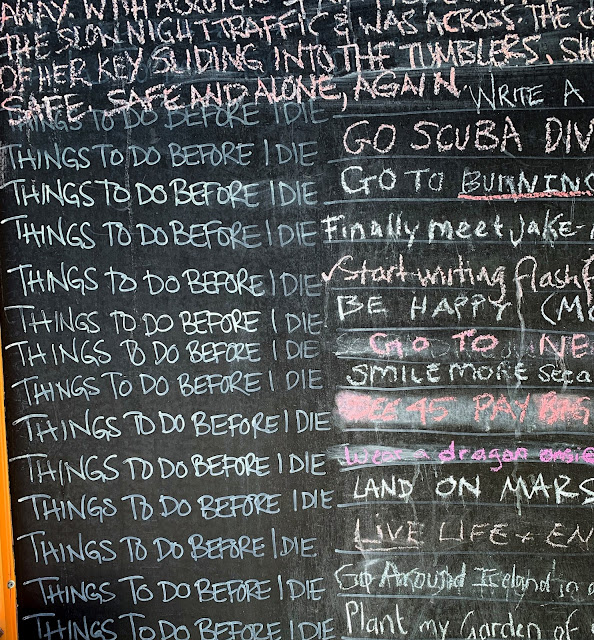 AWAY. WITH
THE SLOW NIGHT TRAFFIC & WAS ACROSS. THE
OF HER KEY SLIDING INTO THE TUMBLERS. SHE
SAFE. SAFE AND ALONE, AGAIN.
THINGS TO DO BEFORE I DIE WRITE A
THINGS TO DO BEFORE I DIE GO SCUBA DIV
THINGS TO DO BEFORE I DIE GO TO BURNING
THINGS TO DO BEFORE I DIE Finally meet JAKE-
THINGS TO DO BEFORE I DIE ✓Start writing flash f
THINGS TO DO BEFORE I DIE BE HAPPY (MO
THINGS TO DO BEFORE I DIE GO TO NE
THINGS TO DO BEFORE I DIE SMILE MORE
THINGS TO DO BEFORE I DIE SEE 45 PAY
THINGS TO DO BEFORE I DIE Wear a dragon onesie
THINGS TO DO BEFORE I DIE LAND ON MARS
THINGS TO DO BEFORE I DIE LIVE LIFE + EN
THINGS TO DO BEFORE I DIE Go Around Iceland in a
THINGS TO DO BEFORE I DIE Plant my Garden of